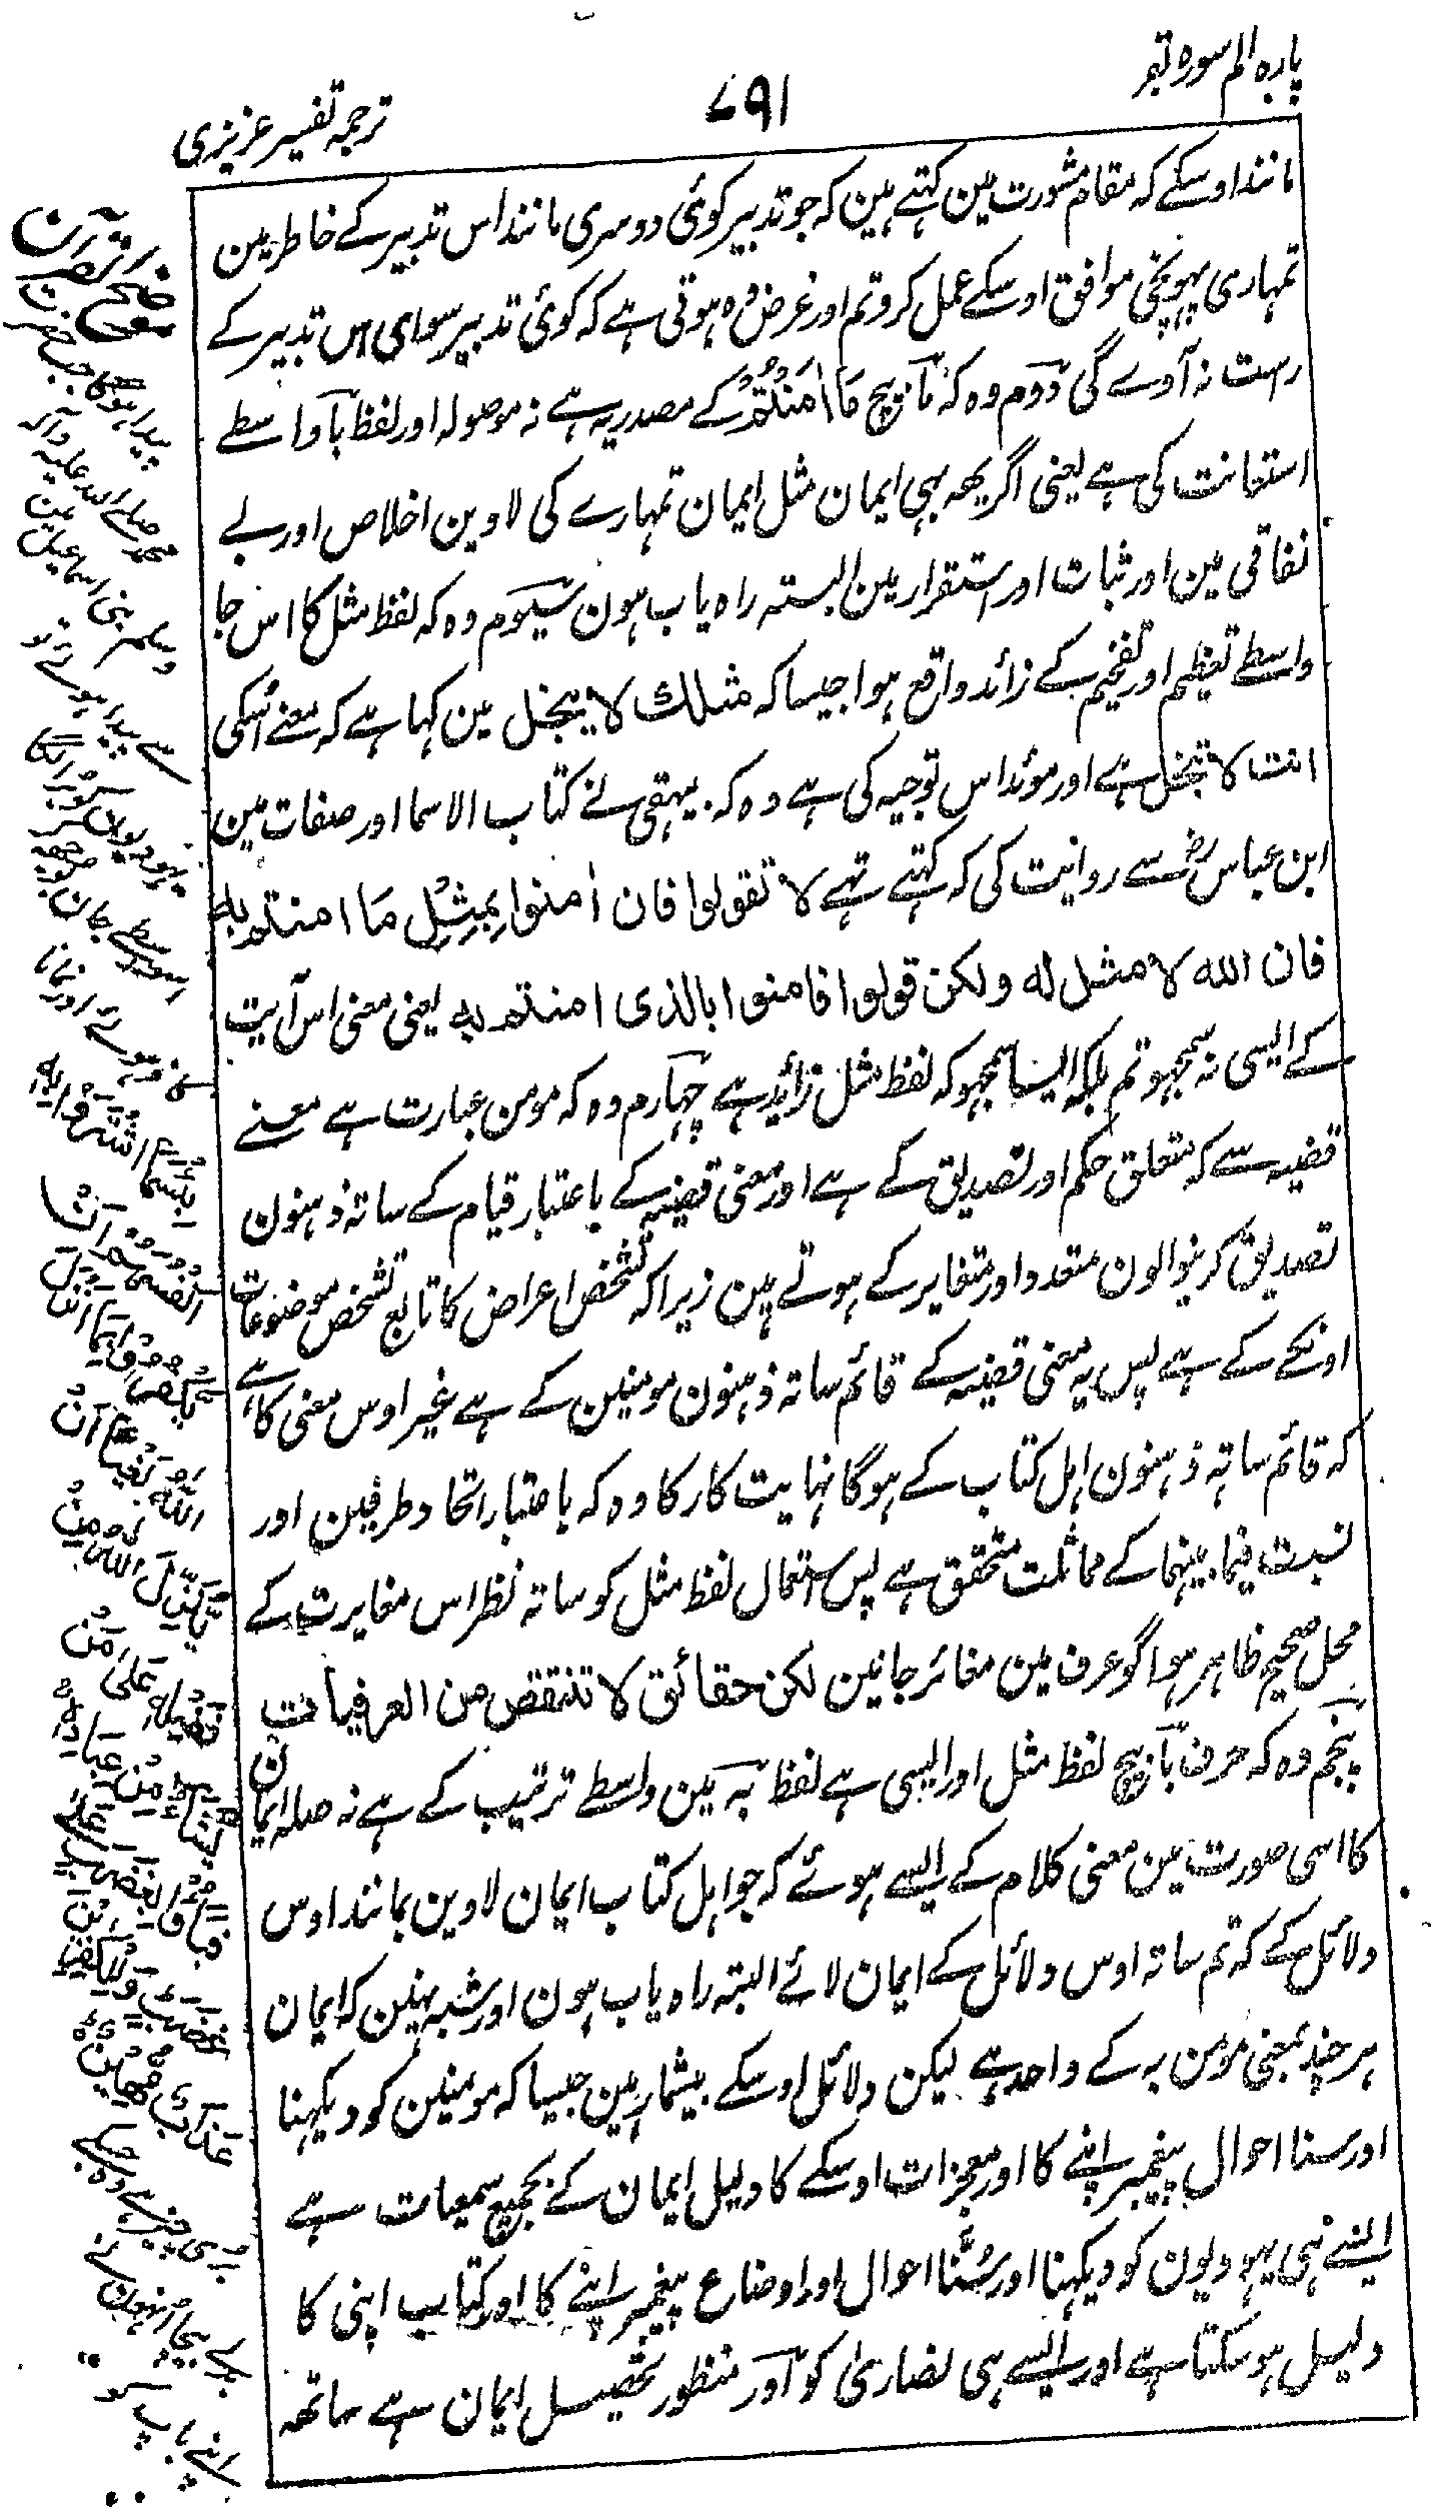 پاره الم سوره بقر
۷۹۱
ترجمہ تفسیر عزیزی
مانند اوسکے کہ مقام مشورت مین کہتے ہین کہ جو تدبیر کوئی دوسری مانند اس تدبیر کے خاطر مین
تمہاری پہونچی موافق اوسکے عمل کرو تم اور غرض وہ ہوتی ہے کہ کوئی تدبیر سوای اس تدبیر کے
رست نہ آوے گی دوم وہ کہ ما بیچ مَا اٰمَنْتُمْ کے مصدریہ ہے نہ موصولہ اور لفظ با واسطے
استعانت کی ہے یعنی اگر یھہ بہی ایمان مثل ایمان تمہارے کی لاوین اخلاص اور بے
نفاقی مین اور ثبات اور استقرار مین البستہ راہ یاب ہون سیوم وہ کہ لفظ مثل کا اس جا
واسطے تعظیم اور تفخیم کے زائد واقع ہوا جیسا کہ مثلك لا یبخل مین کہا ہے کہ معنے اُسکی
انت لا تبخل ہے اور موئد اس توجیہ کی ہے وہ کہ بیہقی نے کتاب الاسما اور صفات مین
ابن عباس رضہ سے روایت کی کہ کہتے تہے لا تقولوا فان اٰمنوا بِمِثْلِ مَا اٰمنتم به
فان الله لا مثل له ولكن قولوا فامنوا بالذى امنتم به یعنی معنی اس آیت
کے ایسی نہ سمجہو تم بلکہ ایسا سمجہو کہ لفظ مثل زائد ہے چہارم وہ کہ مومن عبارت ہے معنے
قضیہ سے کہ متعلق حکم اور تصدیق کے ہے اور معنی قضیہ کے باعتبار قیام کے ساتہ ذہنون
تصدیق کرینوالون متعدد اور متغایر کے ہوتے ہین زیرا کہ تشخص اعراض کا تابع تشخص موضوعات
اونکے کے ہے پس یہ معنی قضیہ کے قائم ساتہ ذہنون مومنین کے ہے غیر اوس معنی کا ہے
کہ قائم ساتہ ذہنون اہل کتاب کے ہوگا نہایت کار کا وہ کہ باعتبار اتحاد طرفین اور
نسبت فیما بینہما کے مماثلت متحقق ہے پس استعمال لفظ مثل کو ساتہ نظر اس مغایرت کے
محل صحیح ظاہر ہوا گو عرف مین مغائر جانین لکن حقائق لا تنتقض من العرفیات
پنجم وہ کہ حرف با بیچ لفظ مثل اور ایسی ہے لفظ بہ مین واسطے ترتیب کے ہے نہ صلہ ایمان
کا اسی صورت مین معنی کلام کے ایسے ہوئے کہ جو اہل کتاب ایمان لاوین بمانند اوس
دلائل کے کہ تم ساتہ اوس دلائل کے ایمان لائے البتہ راہ یاب ہون اور شبہ نہین کہ ایمان
ہر چند بمعنی مومن بہ کے واحد ہے لیکن دلائل اوسکے بیشمار ہین جیسا کہ مومنین کو دیکہنا
اور سنا احوال پیغمبر اپنے کا اور معجزات اوسکے کا دلیل ایمان کے بجمیع سمعیات ہے
ایسے ہی یہودیون کو دیکہنا اور سُننا احوال اور اوضاع پیغمبر اپنے کا اور کتاب اپنی کا
دلیل ہو سکتا ہے اور ایسے ہی نصاریٰ کو اور منظور تحصیل ایمان ہے ساتھہ
موضح القرآن
پیدا ہوگا جب حضرت
محمد صلے اللہ علیہ وآلہ
وسلم بنی اسماعیل مین
سے پیدا ہوے تو
یہودیون
واسطے جان بوجھہ
کافر ہوے اور نمانا
بِئْسَمَا اشْتَرَوْا بِهٖ
اَنْفُسَهُمْ اَنْ
يَّكْفُرُوْا بِمَا اَنْزَلَ
اللّٰهُ بَغْيًا اَنْ
يُّنَزِّلَ اللّٰهُ مِنْ
فَضْلِهٖ عَلٰى مَنْ
يَّشَآءُ مِنْ عِبَادِهٖ
فَبَآءُوْ بِغَضَبٍ عَلٰى
غَضَبٍ وَلِلْكٰفِرِيْنَ
عَذَابٌ مُّهِيْنٌ
بری چیز ہے وہ جسکے
بدلے بیچا اونہون نے
اپنے آپ کو